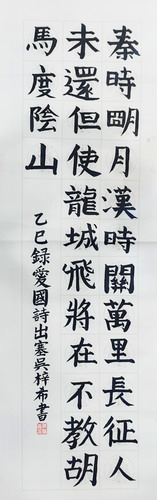 秦時明月漢時關萬里長征人
未還但使龍城飛將在不教胡
馬度陰山
乙巳錄愛國詩出塞吳梓希書